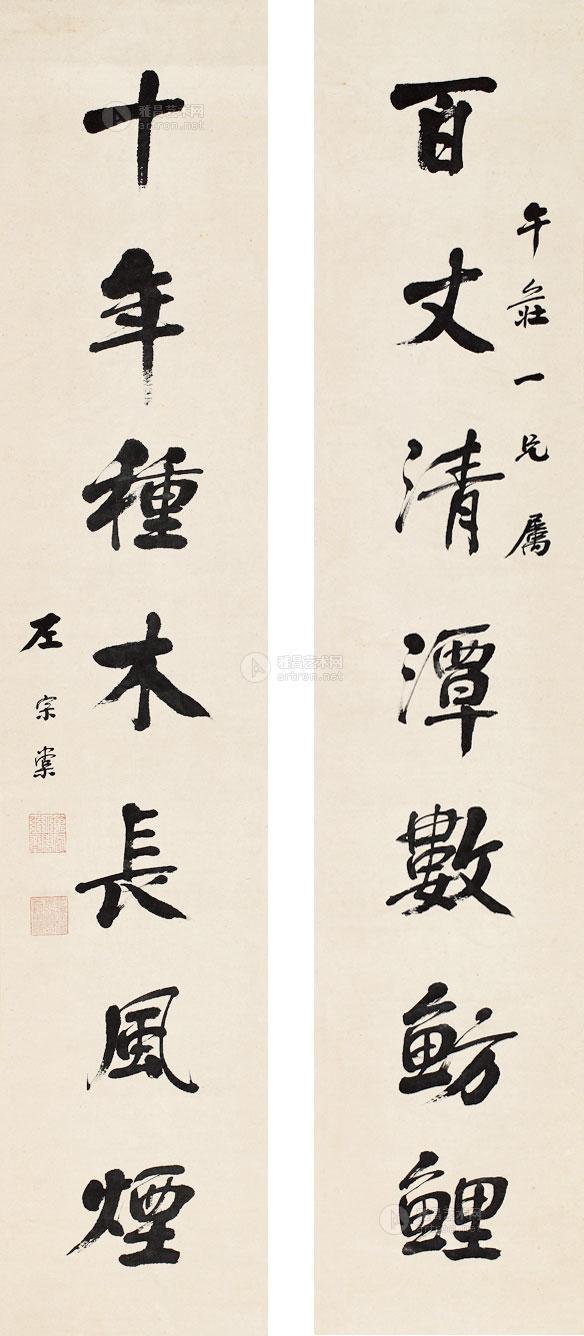 午莊一兄屬
百丈清潭數魴鯉
十年種木長風煙
左宗棠
雅昌艺术网
artron.net
雅昌艺术网
artron.net
雅昌艺术网
artron.net